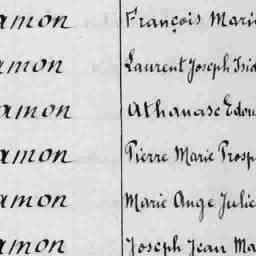 amon François Mari
amon Laurent Joseph Isid
amon Athanase Edou
amon Pierre Marie Prosp
amon Marie Ange Julie
amon Joseph Jean Ma